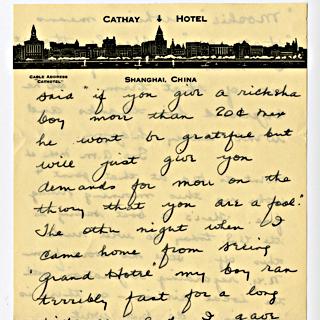 CATHAY HOTEL
CABLE ADDRESS
"CATHOTEL"
SHANGHAI, CHINA
said "if you give a ricksha
boy more than 20¢ mex
he wont be grateful but
will just give you
demands for more on the
theory that you are a fool."
The other night when I
came home from seeing
"Grand Hotel" my boy ran
terribly fast for a long
I gave